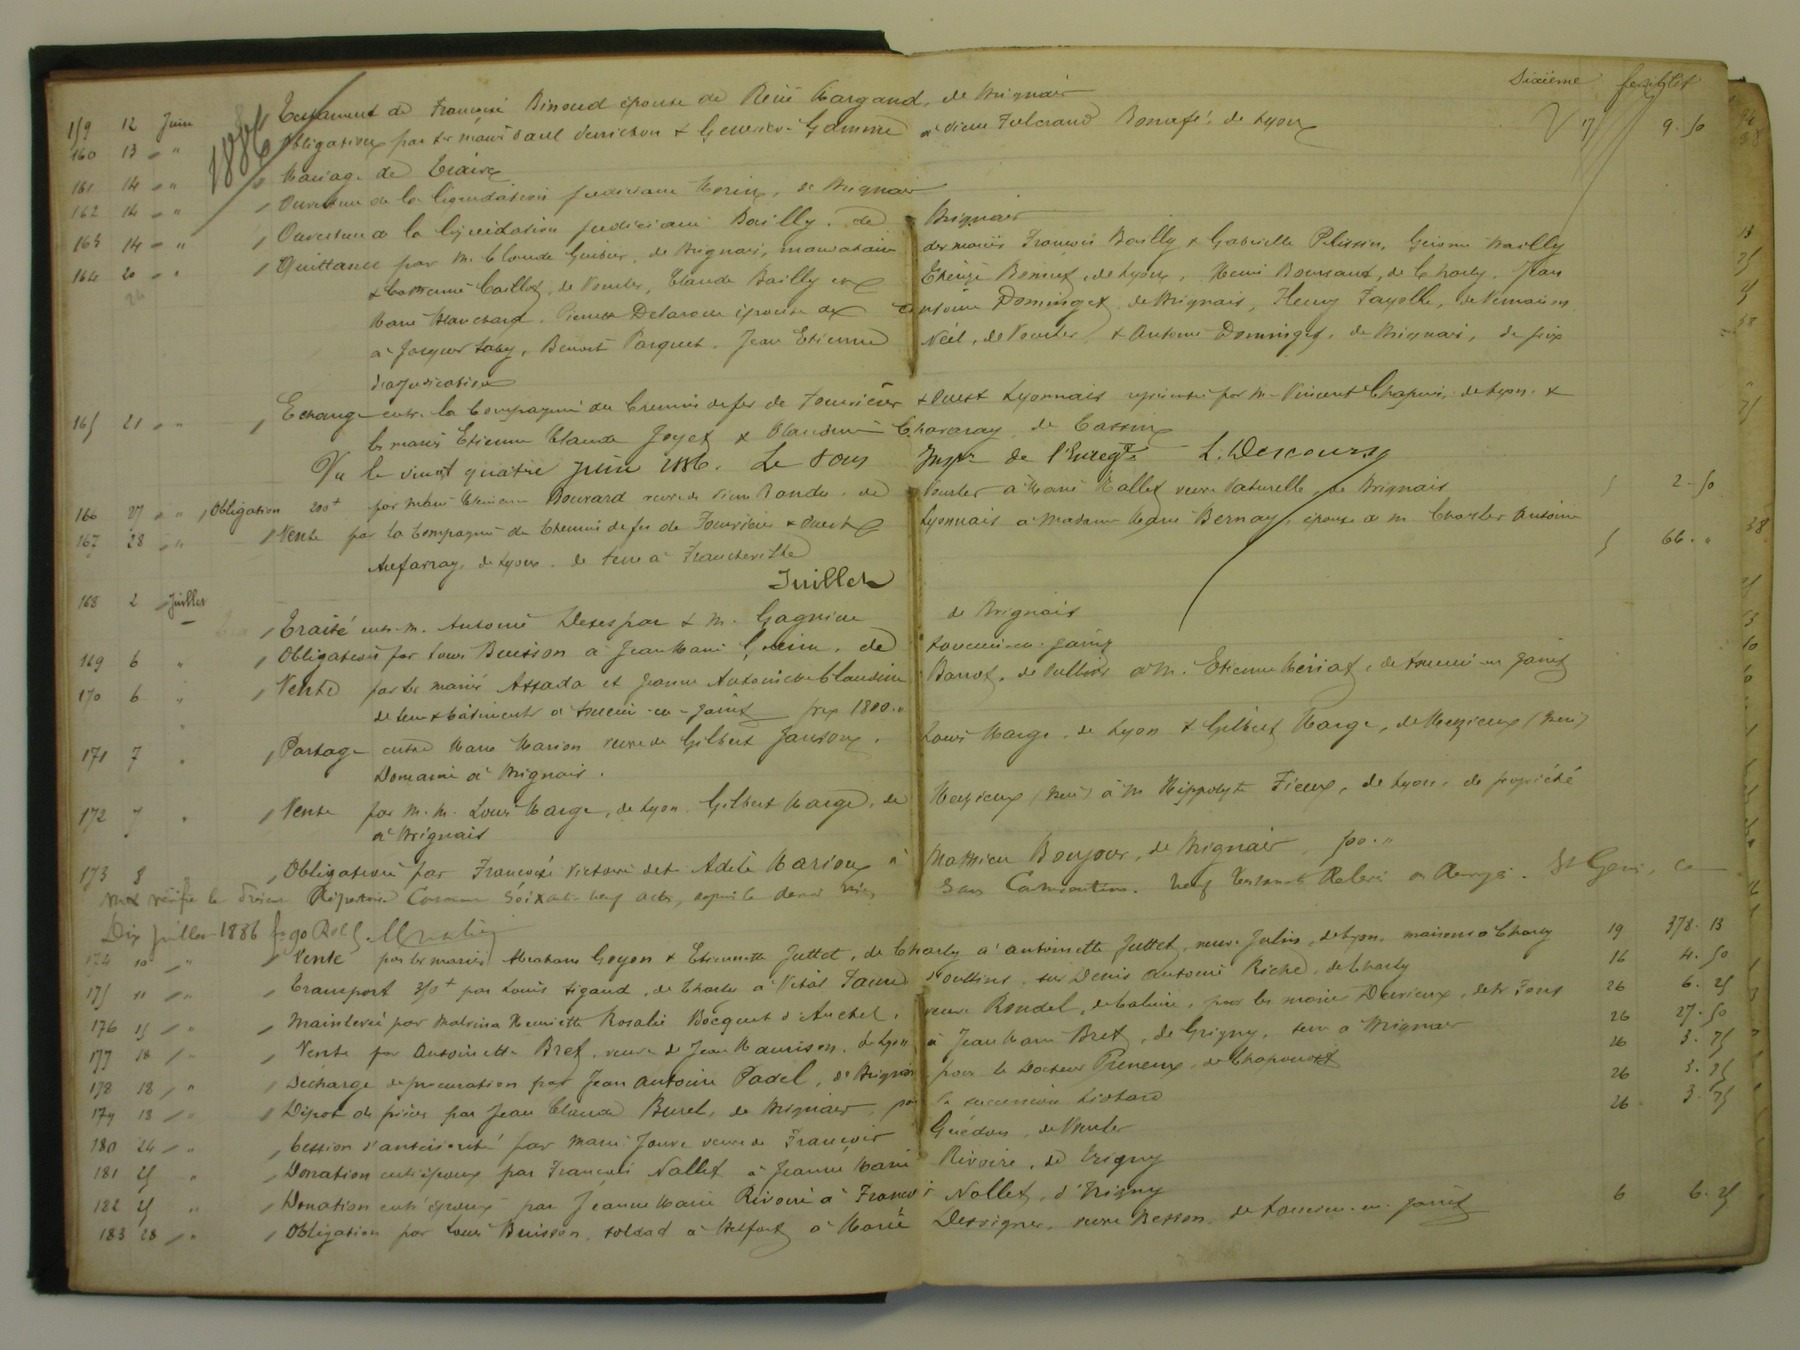 Sixième feuillet
1886
159 12 Juin Testament de Françoise Binoud épouse de René Margand, de Brignais
160 13 " Obligation par les mariés Paul Venicton & Geneviève Gamme à Pierre Fulcrand Bonafé, de Lyon 17 9.50
161 14 " Mariage de
162 14 " Ouverture de la liquidation judiciaire Morin, de Brignais
163 14 " Ouverture de la liquidation judiciaire Bailly, de Brignais
164 20 " Quittance par M. Claude Guinier, de Brignais, mandataire des mariés François Bailly & Gabrielle Pelissin, Gerome Bailly
& Catherine Caillot, de Vourles, Claude Bailly et Bonnet, de Lyon, Henri Boursaut, de Charly, Jean
Marie Blanchard, Pierrette Delaroche épouse de Antoine Dominget, de Brignais, Henry Fayolle, de Vernaison
à Jacques Laby, Benoit Parquet, Jean Etienne Néel, de Vourles, & Antoine Dominget, de Brignais, de prix
d'adjudication
165 21 " Echange entre la Compagnie du Chemin de fer de Fourvière & Ouest Lyonnais représentée par M. Vincent Chapuis, de Lyon, &
les mariés Etienne Claude Joyet & Claudine Chavaray, de
Vu le vingt quatre Juin 1886. Le Sous Inspr de l'Enregt L. Descours
166 27 " Obligation 200 f par Marie Bouvard veuve de Pierre Randu, de Vourles à Marie Mallet veuve Paturelle, de Brignais 2.50
167 28 " Vente par la Compagnie du Chemin de fer de Fourvière & Ouest Lyonnais à Madame Marie Bernay, épouse de M. Charles Antoine 66."
de Lyon, de terre à Francheville
Juillet
168 2 Juillet Traité entre M. Antoine Desespar & M. Gagnieu de Brignais
169 6 " Obligation par Louis Buisson à Jean Marie de Soucieu-en-Jarret
170 6 " Vente par les mariés Assada et Jeanne Antoinette Claudine Barrot, de Oullins à M. Etienne Mériat, de Soucieu en Jarret
de terre & bâtiments à Soucieu-en-Jarret prix 1800."
171 7 " Partage entre Marie Marion veuve de Gilbert Jansoux, Louis Marge, de Lyon & Gilbert Marge, de Meyzieux (Isère)
Domaine à Brignais.
172 7 " Vente par M.M. Louis Marge, de Lyon, Gilbert Marge, de Meyzieux (Isère) à M. Hippolyte Fieux, de Lyon, de propriété
à Brignais
173 8 Obligation par Françoise Victoire dite Adèle Marion à Mathieu Bonjour, de Brignais
Vu & vérifié le présent Répertoire Concernant Soixante neuf actes, depuis le dernier visa, Sans Contravention. St Genis, ce
Dix Juillet 1886
174 10 " Vente par les mariés Abraham Goyon & Etiennette Juttet, de Charly à Antoinette Juttet, veuve Julin, de Lyon, maison à Charly 19 378.13
175 11 " Transport 350 f par Louis Sigaud, de Charly à Vital Faure d'Oullins, sur Denis Antoine Riche, de Charly 16 4.50
176 15 " Mainlevée par Malvina Henriette Rosalie Bocquet d'Anchel, veuve Rondel, de Caluire, pour les mariés Durieux, de St Fons 26 6.25
177 18 " Vente par Antoinette Bret, veuve de Jean Maurison, de Lyon à Jean Marie Bret, de Grigny, terre à Brignais 26 27.50
178 18 " Décharge de procuration par Jean Antoine Padel, de Brignais pour le Docteur Preneux, de Chaponost 26 3.75
179 18 " Dépot de pièces par Jean Claude Burel, de Brignais, pour la succession Liotard 26 3.75
180 24 " Cession d'antériorité par Marie Jouve veuve de François Guédon, de Vourles 26 3.75
181 25 " Donation entre époux par François Nallet à Jeanne Marie Rivoire, de Irigny
182 25 " Donation entre époux par Jeanne Marie Rivoire à François Nallet, d'Irigny
183 28 " Obligation par Louis Buisson, soldat à Belfort à Marie Dessigner, veuve Besson, de Soucieu-en-Jarret 6 6.25